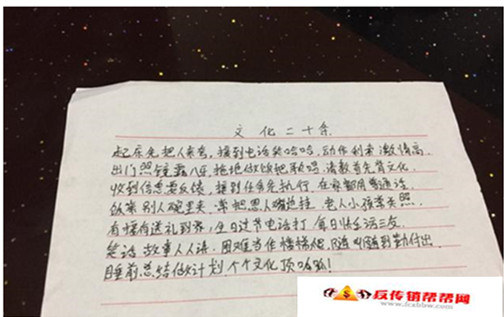 文化二十条
起床先把人来夸,接到电话笑哈哈,动作利索激情高
出门照镜露八牙,抢抢做饭把歌唱,请教首先背文化
收到信息要反馈,接到任务先执行,在家都用普通话
饭菜别人碗里夹,常把恩人嘴边挂,老人小孩
有接有送礼到界,生日过节电话打,每日生活三
笑话故事人人讲,困难当作楼梯爬,随叫随到勤付出
睡前总结做计划,个个文化顶呱呱!
反传销帮帮网
www.fcxbbw.com